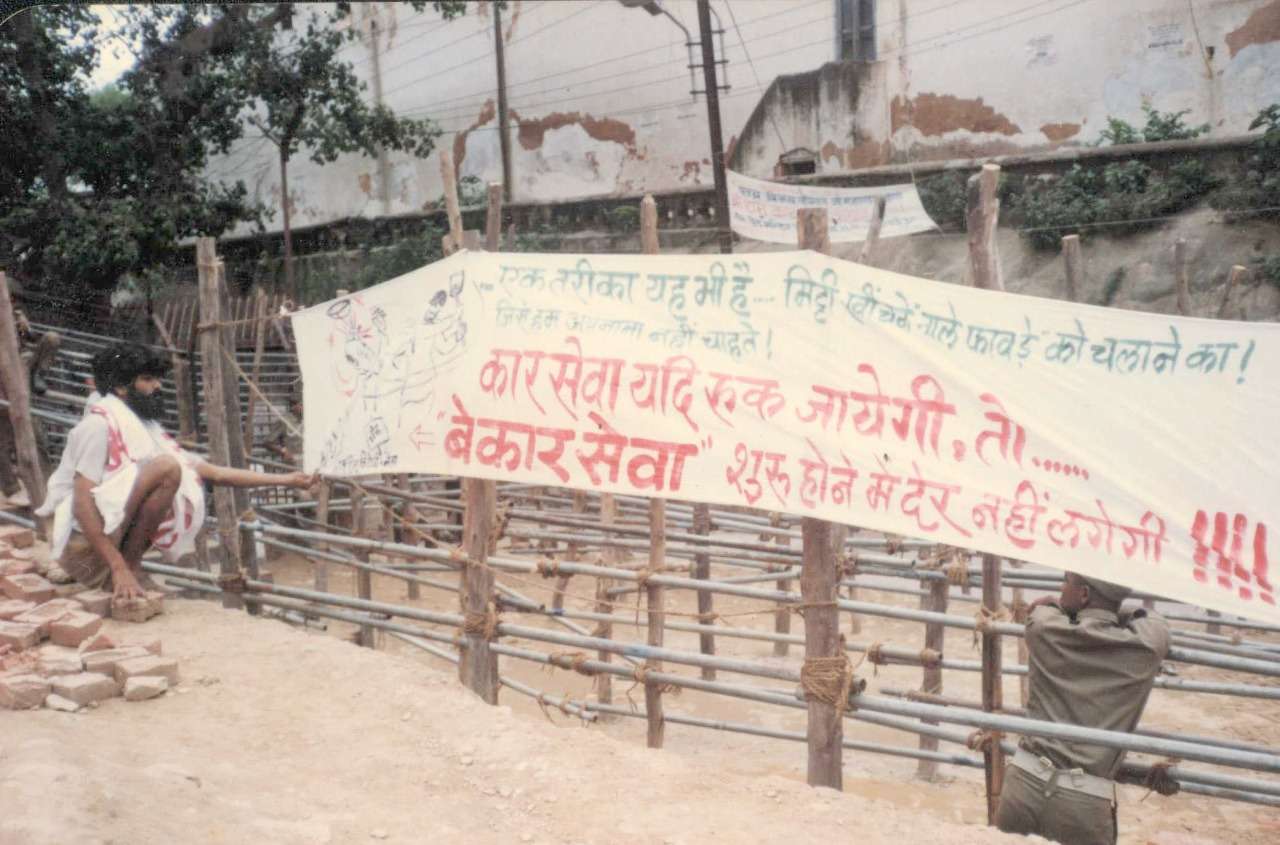 एक तरीका यह भी है.... मिट्टी खींचने वाले फावड़े को चलाने का!
जिसे हम अपनाना नहीं चाहते!
कार सेवा यदि रुक जायेगी, तो......
"बेकार सेवा" शुरू होने में देर नहीं लगेगी !!!!